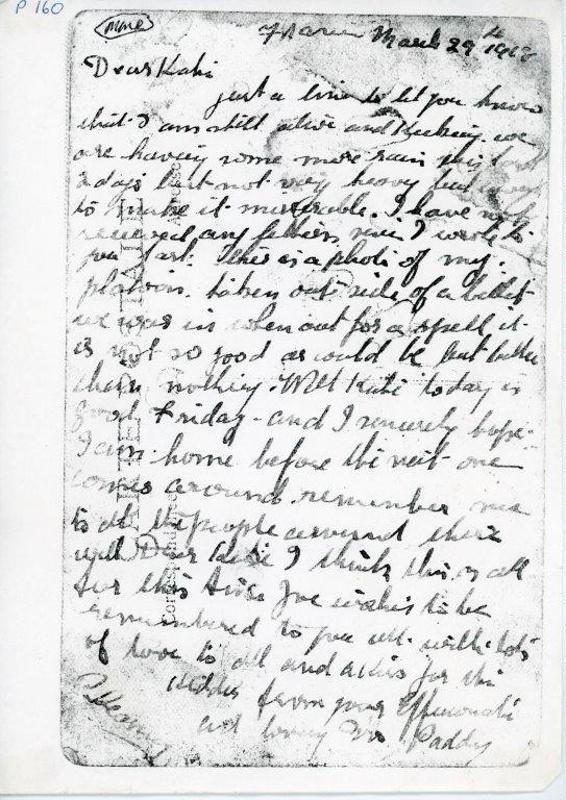 P 160
mme
France March 29th 1918
Dear Kate
just a line to let you know
that I am still alive and kicking. we
are having some more rain this last
2 days but not very heavy but
to make it miserable. I have not
received any letters since I wrote to
you last. This is a photo of my
platoon. taken out side of a billet
we was in when out for a spell it
is not so good as would be but better
than nothing. Well Kate today is
good Friday - and I sincerely hope
I am home before the next one
comes around. remember me
to all the people around there
well Dear Kate I think this is all
for this time Joe wishes to be
remembered to you all. with lots
of love to all and a kiss for the
kiddies from your affectionate
and loving Bro Paddy